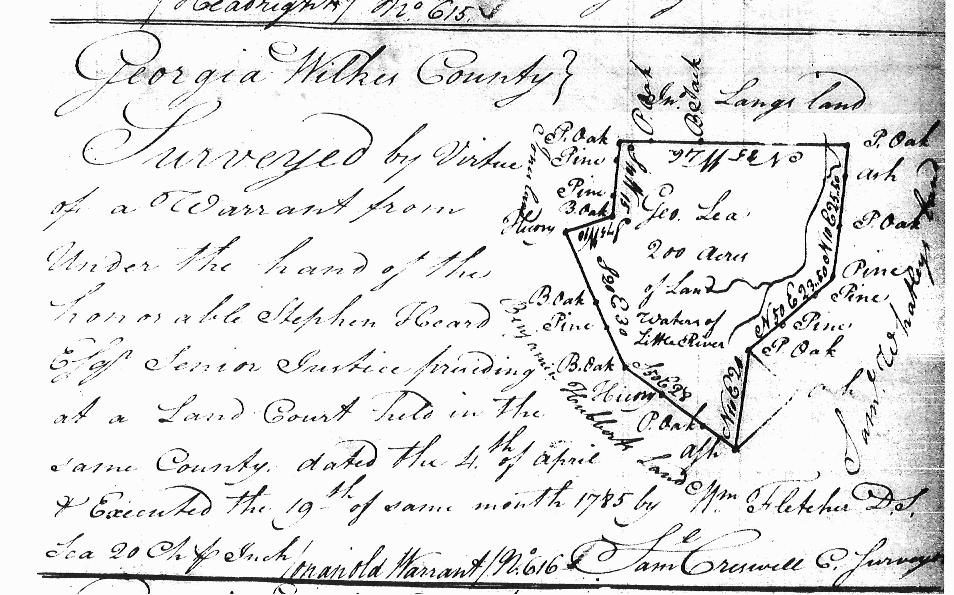 Headright / No. 615
Georgia Wilkes County }
Surveyed by Virtue
of a Warrant from
Under the hand of the
honorable Stephen Heard
Esqr Senior Justice presiding
at a Land Court held in the
same County. dated the 4th of April
& Executed the 19th of same month 1785 by Wm Fletcher D.S.
Sca 20 Ch pr Inch / on an old Warrant / No. 616 Saml Creswell C. Surveyor
P. Oak
B. Jack
Jno. Langs land
P. Oak
Pine
Pine
B. Oak
Hicory
B. Oak
Pine
B. Oak
Hicory
P. Oak
Ash
Benjamin Hubbert Land
N 85 W 26
Geo. Lea
200 Acres
of Land
Waters of
Little River
S 20 E 30
S 50 E 28
N 10 E 20
N 50 E 23.50
N 10 E 25.50
P. Oak
ash
P. Oak
Pine
Pine
Pine
P. Oak
Saml Whatleys land